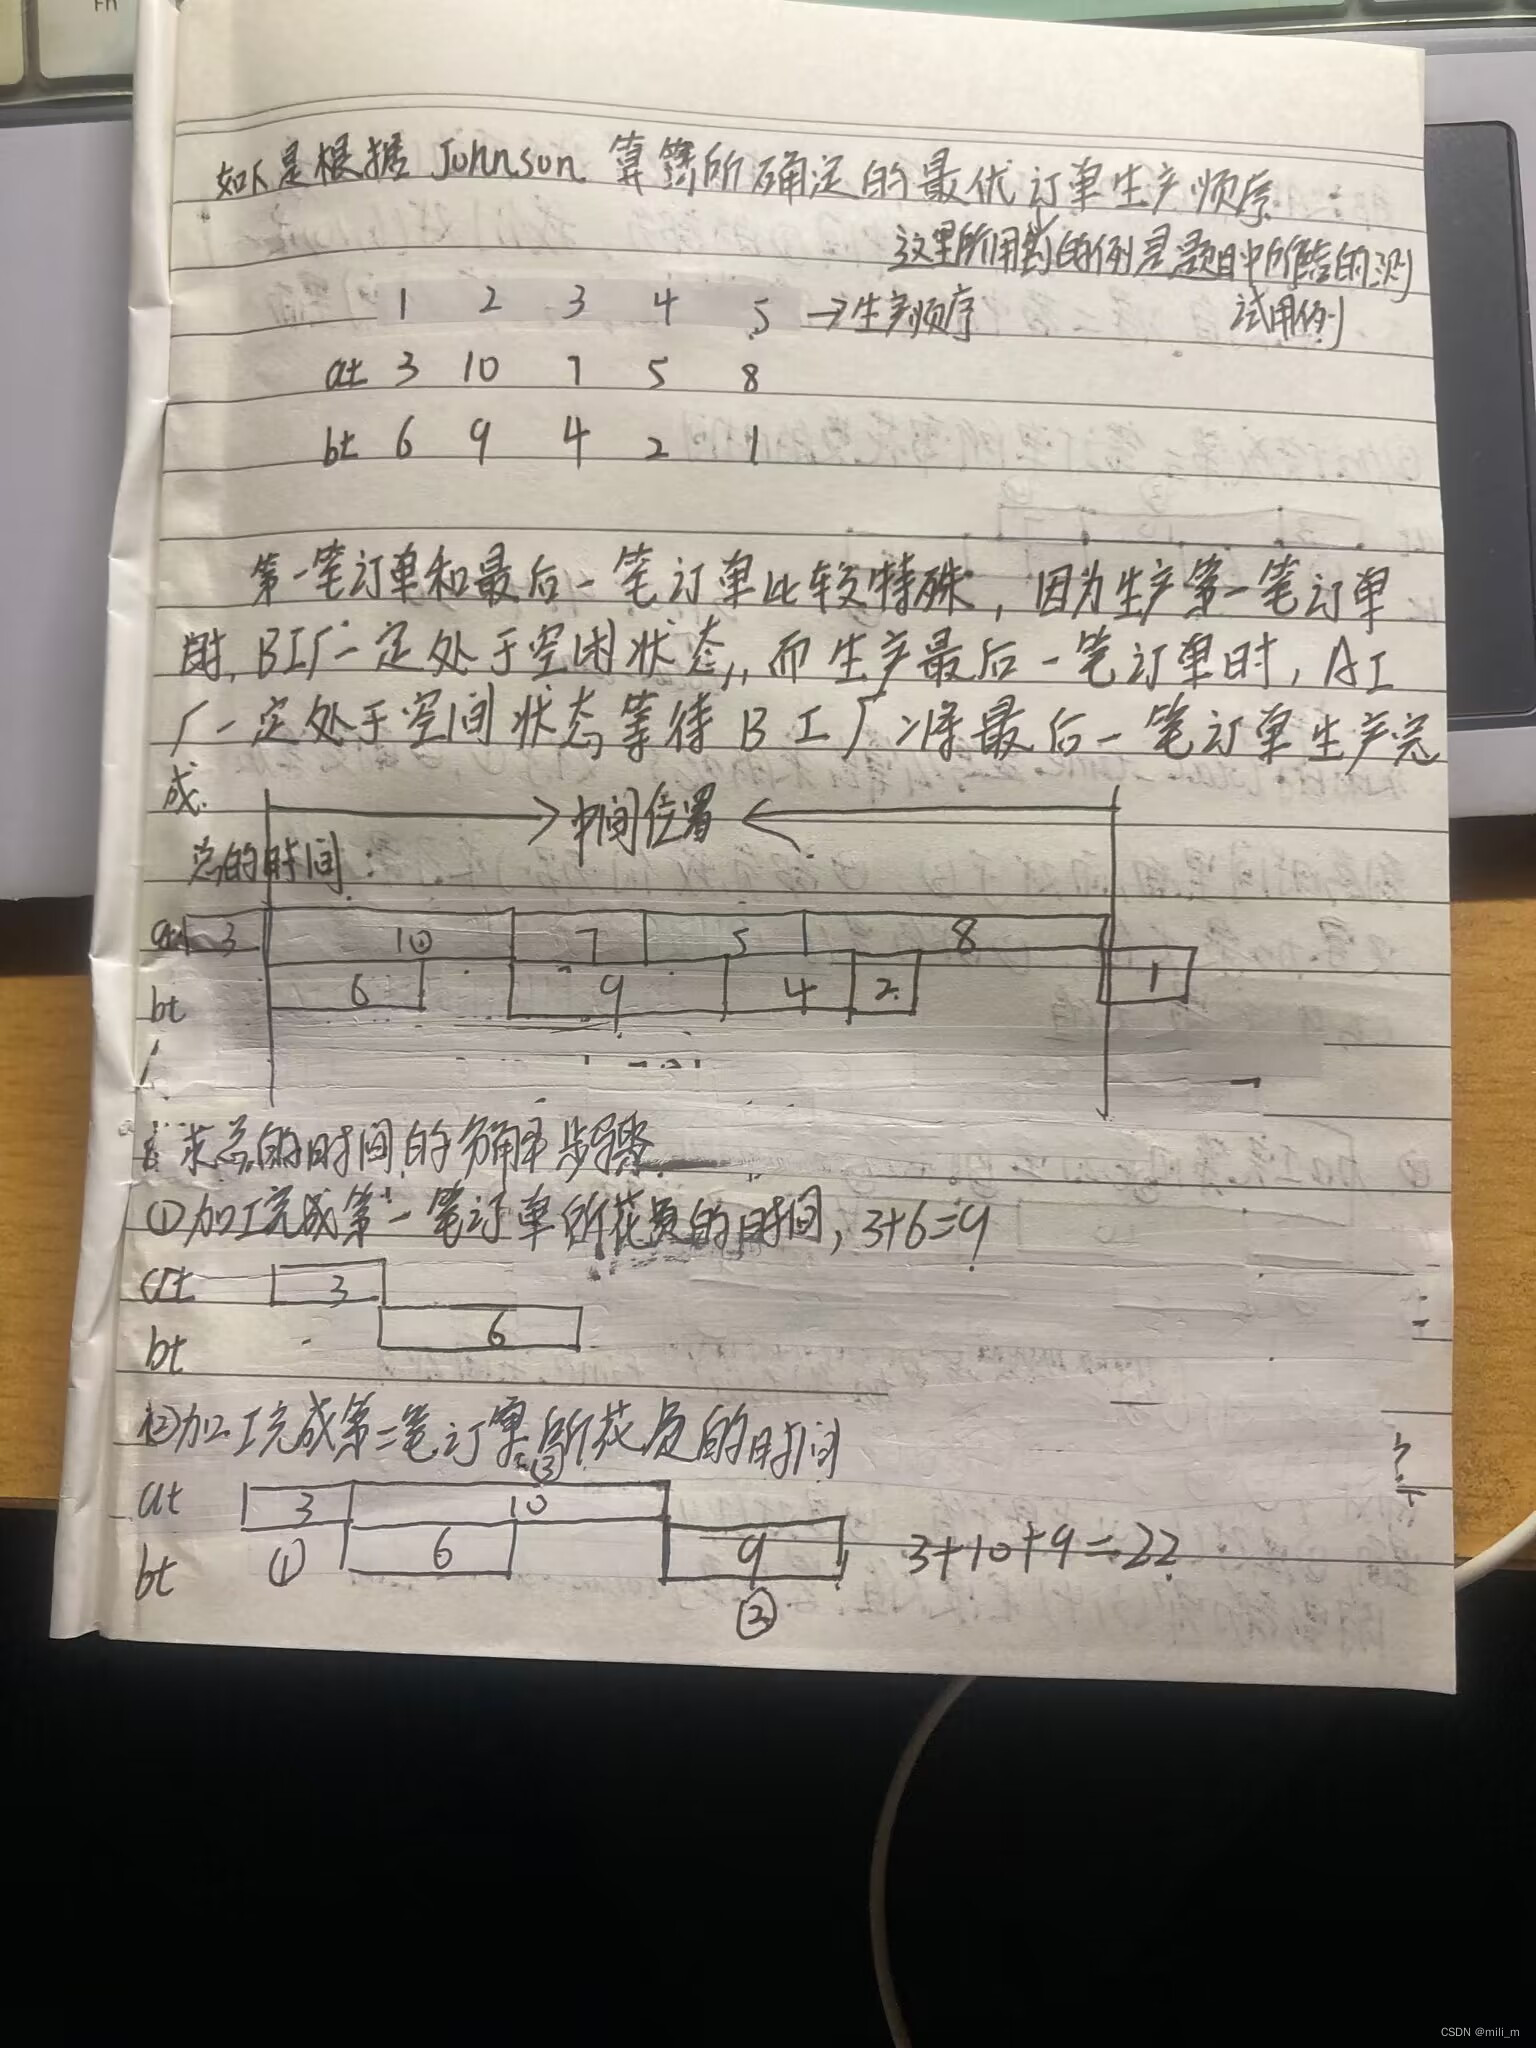 Fn
如下是根据 Johnson 算法所确定的最优订单生产顺序
这里所用到的例是题目中所给的测
试用例
1 2 3 4 5 →生产顺序
at 3 10 7 5 8
bt 6 9 4 2 1
第一笔订单和最后一笔订单比较特殊，因为生产第一笔订单
时，B工厂一定处于空闲状态，而生产最后一笔订单时，A工
厂一定处于空闲状态等待B工厂将最后一笔订单生产完
成.
中间位置
总的时间：
at 3 10 7 5 8
bt 6 9 4 2 1
求总的时间的分解步骤
①加工完成第一笔订单所花费的时间，3+6=9
at 3
bt 6
②加工完成第二笔订单所花费的时间
at 3 10
bt ① 6 9 3+10+9=22
②
CSDN @mili_m